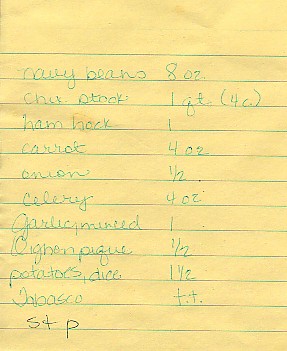 navy beans 8 oz.
chix stock 1 qt. (4c.)
ham hock 1
carrot 4 oz
onion 1/2
celery 4 oz
Garlic, minced 1
Oignon pique 1/2
potatoes, dice 1 1/2
Tobasco t.t.
s+p